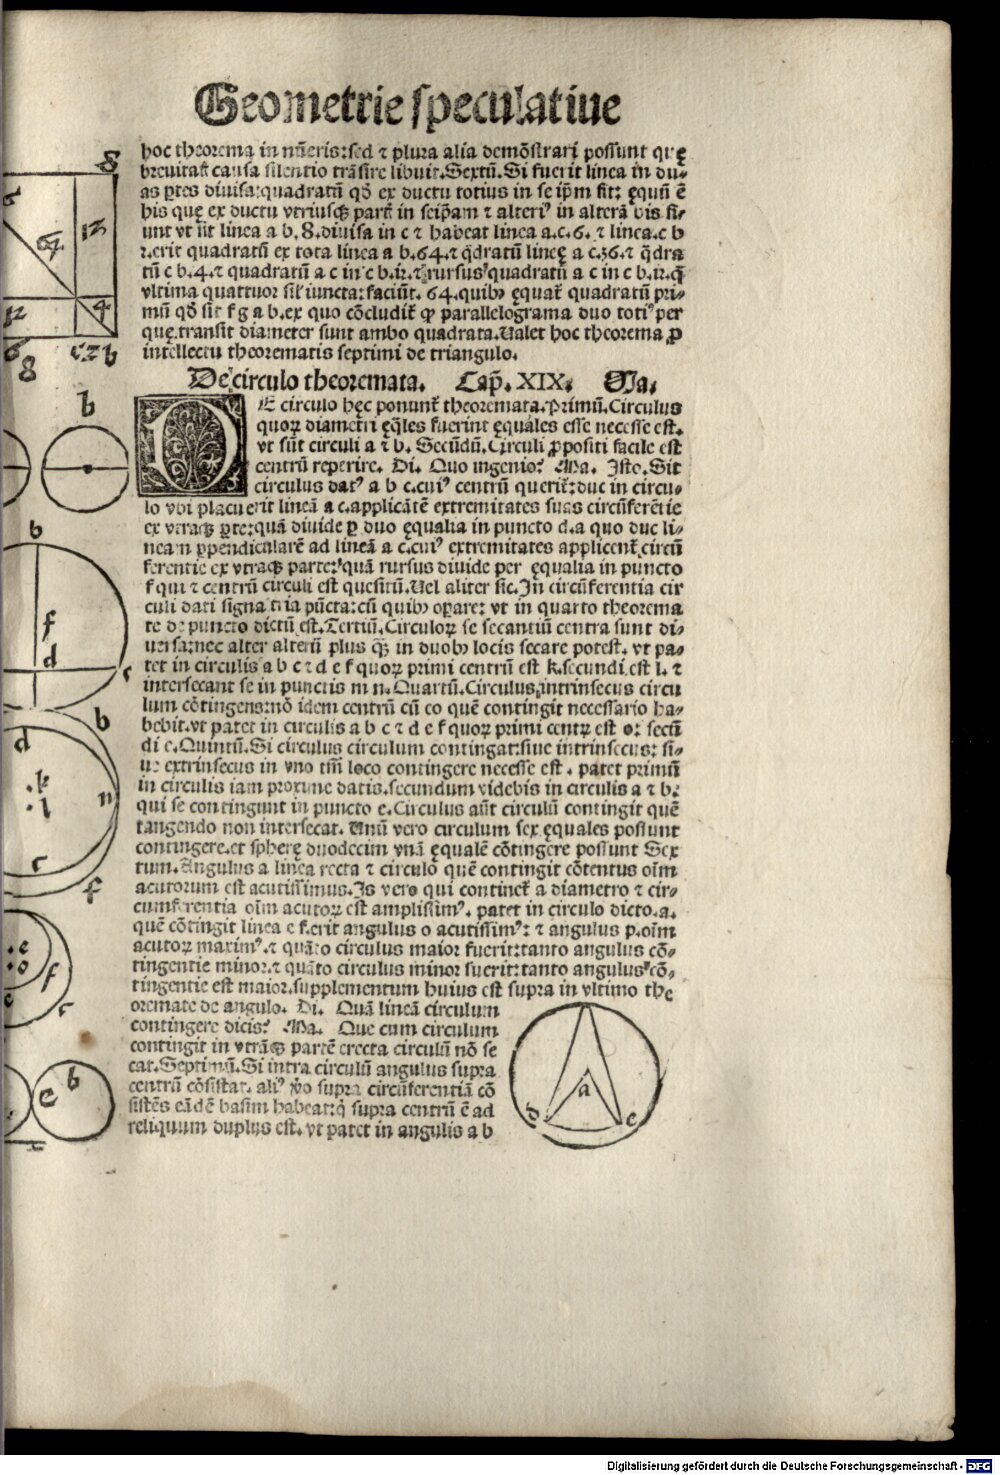 Geometrie speculatiue
hoc theorema in nūeris: sed ⁊ plura alia demōstrari possunt quę
breuitatꝭ causa silentio trāsire libuit. Sextū. Si fuerit linea in du⸗
as ꝑtes diuisa: quadratū qđ ex ductu totius in se ip̄m fit: ęquū ē
his quę ex ductu vtriusqꝫ partꝭ in seip̄am ⁊ alteriꝰ in alterā bis fi⸗
unt vt sit linea a b. 8. diuisa in c ⁊ habeat linea a.c.6. ⁊ linea.c b
2. erit quadratū ex tota linea a b.64. ⁊ q̄dratū lineę a c.36. ⁊ q̄dra
tū c b.4. ⁊ quadratū a c in c b.12. ⁊ rursus quadratū a c in c b.12. q̄
vltima quattuor sil' iuncta: faciūt. 64. quibꝰ ęquatꝭ quadratū pri⸗
mū qđ sit f g a b. ex quo cōcluditꝭ ꝙ parallelograma duo totiꝰ per
que. transit diameter sunt ambo quadrata. Ualet hoc theorema ꝓ
intellectu theorematis septimi de triangulo.
De circulo theoremata. Cap̄. XIX. Ma.
DE circulo hęc ponuntꝭ theoremata. Primū. Circulus
quoꝝ diametri ęq̄les fuerint ęquales esse necesse est.
vt sūt circuli a ⁊ b. Secūdū. Circuli ꝓpositi facile est
centrū reperire. Di. Quo ingenio? Ma. Isto. Sit
circulus datꝰ a b c. cuiꝰ centrū queritꝭ: duc in circu⸗
lo vbi placuerit lineā a c. applicātē extremitates suas circūferētie
ex vtraqꝫ ꝑte: quā diuide ꝑ duo ęqualia in puncto d. a quo duc li⸗
neam ꝑpendicularē ad lineā a c. cuiꝰ extremitates applicentꝭ circū
ferentie ex vtraqꝫ parte: quā rursus diuide per ęqualia in puncto
f qui ⁊ centrū circuli est quesitū. Uel aliter sic. In circūferentia cir
culi dati signa tria pūcta: cū quibꝰ oꝑare: vt in quarto theorema
te de puncto dictū est. Tertiū. Circuloꝝ se secantiū centra sunt di⸗
uersa: nec alter alterū plus qꝫ in duobꝰ locis secare potest. vt pa⸗
tet in circulis a b c ⁊ d e f quoꝝ primi centrū est k. secundi est l. ⁊
intersecant se in punctis m n. Quartū. Circulus intrinsecus circu
lum cōtingens: nō idem centrū cū eo quē contingit necessario ha⸗
bebit. vt patet in circulis a b c ⁊ d e f quoꝝ primi centꝝ est o: secū
di e. Quintū. Si circulus circulum contingat: siue intrinsecus: si⸗
ue extrinsecus in vno tm̄ loco contingere necesse est. patet primū
in circulis iam proxime datis. secundum videbis in circulis a ⁊ b:
qui se contingunt in puncto e. Circulus aūt circulū contingit quē
tangendo non intersecat. Unū vero circulum sex ęquales possunt
contingere. et spherę duodecim vnā ęqualē cōtingere possunt Sex
tum. Angulus a linea recta ⁊ circulo quē contingit cōtentus oīm
acutorum est acutissimus. Is vero qui continetꝭ a diametro ⁊ cir⸗
cumferentia oīm acutoꝝ est amplissimꝰ. patet in circulo dicto. a.
quē cōtingit linea e f. erit angulus o acutissimꝰ: ⁊ angulus p. oīm
acutoꝝ maximꝰ. ⁊ quāto circulus maior fuerit: tanto angulus cō⸗
tingentie minor. ⁊ quāto circulus minor fuerit: tanto angulus cō⸗
tingentie est maior. supplementum huius est supra in vltimo the
oremate de angulo. Di. Quā lineā circulum
contingere dicis? Ma. Que cum circulum
contingit in vtrāqꝫ partē erecta circulū nō se
cat. Septimū. Si intra circulū angulus supra
centrū cōsistat. aliꝰ v̄o supra circūferentiā cō
sistēs eādē basim habeat: q̇ supra centrū ē ad
reliquum duplus est. vt patet in angulis a b
8
12
64
4
12
6
c 2 b
8
b
b
f
d
c
b
d
k
l
n
c
f
e
o
f
c
e
b
a
d
e
Digitalisierung gefördert durch die Deutsche Forschungsgemeinschaft - DFG